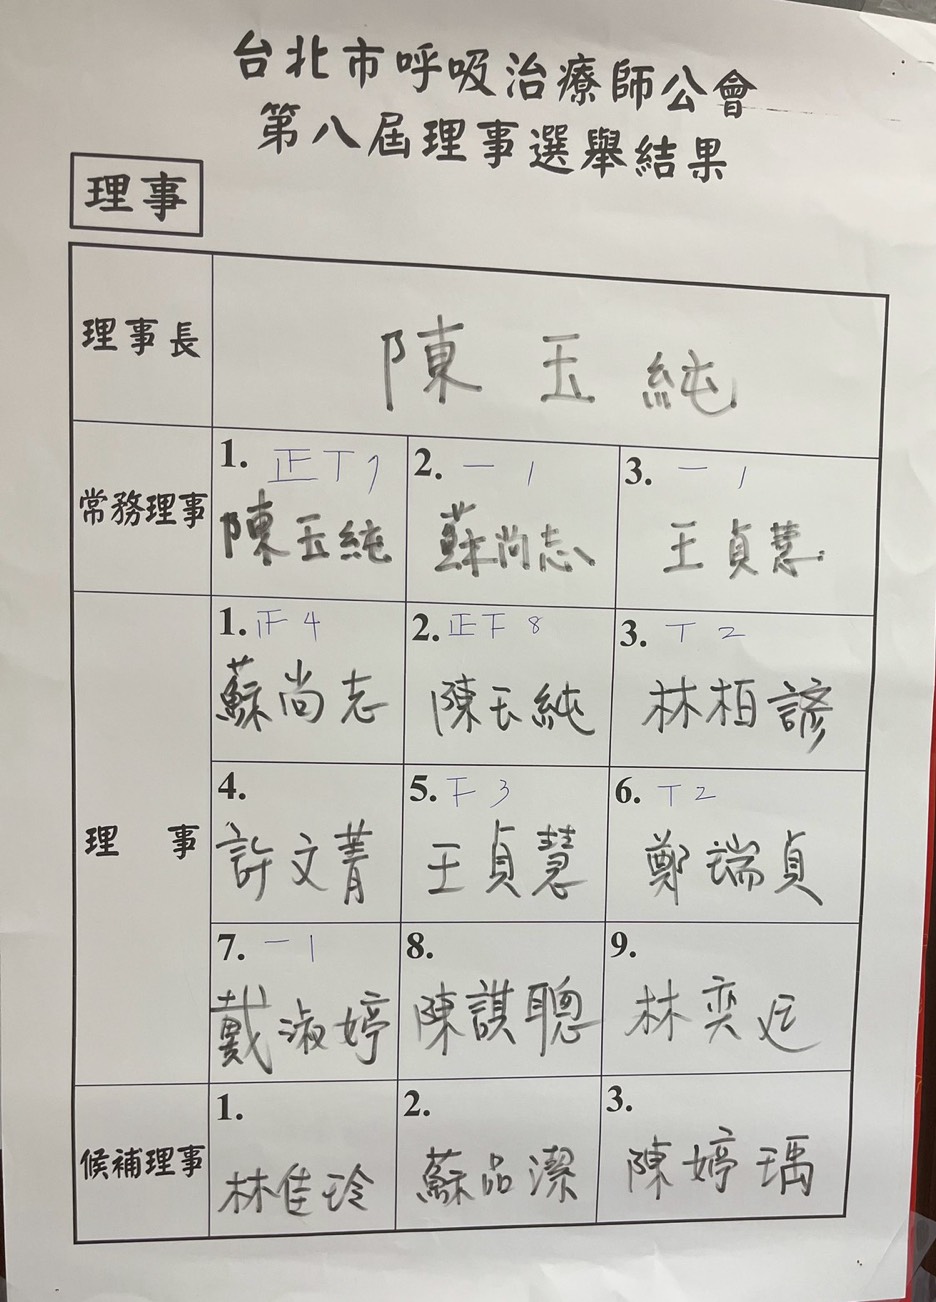 台北市呼吸治療師公會
第八屆理事選舉結果
理事
理事長
陳玉純
常務理事
1. 正丅 7
陳玉純
2. 一 1
蘇尚志
3. 一 1
王貞慧
理事
1. 正 4
蘇尚志
2. 正下 8
陳玉純
3. 丅 2
林柏諺
4.
許文菁
5. 下 3
王貞慧
6. 丅 2
鄭瑞貞
7. 一 1
戴淑婷
8.
陳諆聰
9.
林奕廷
候補理事
1.
林佳玲
2.
蘇品潔
3.
陳婷瑀